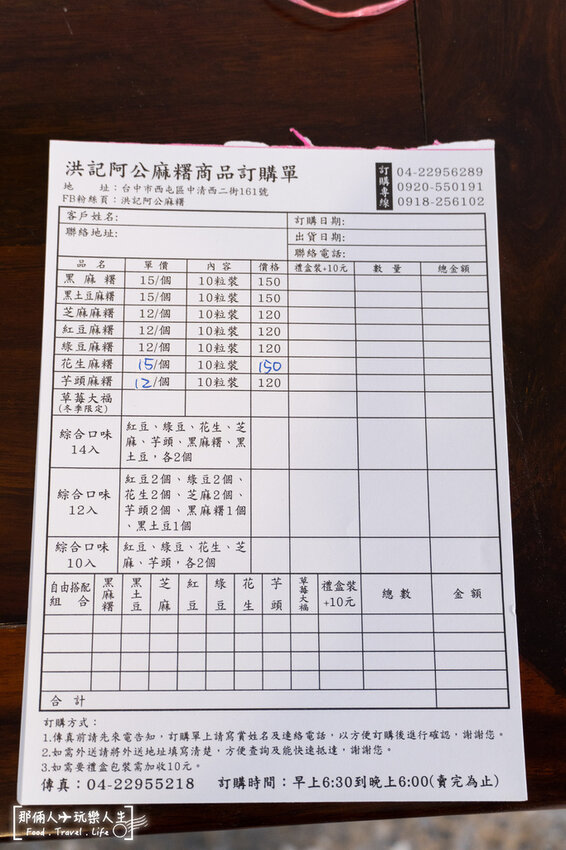 洪記阿公麻糬商品訂購單
地 址：台中市西屯區中清西二街161號
FB粉絲頁：洪記阿公麻糬
訂購專線
04-22956289
0920-550191
0918-256102
客戶姓名：
訂購日期：
聯絡地址：
出貨日期：
聯絡電話：
品名 單價 內容 價格 禮盒裝+10元 數量 總金額
黑麻糬 15/個 10粒裝 150
黑土豆麻糬 15/個 10粒裝 150
芝麻麻糬 12/個 10粒裝 120
紅豆麻糬 12/個 10粒裝 120
綠豆麻糬 12/個 10粒裝 120
花生麻糬 15/個 10粒裝 150
芋頭麻糬 12/個 10粒裝 120
草莓大福
(冬季限定)
綜合口味
14入
紅豆、綠豆、花生、芝
麻、芋頭、黑麻糬、黑
土豆，各2個
綜合口味
12入
紅豆2個、綠豆2個、
花生2個、芝麻2個、
芋頭2個、黑麻糬1個
、黑土豆1個
綜合口味
10入
紅豆、綠豆、花生、芝
麻、芋頭，各2個
自由搭配
組合
黑麻糬 黑土豆 芝麻 紅豆 綠豆 花生 芋頭 草莓大福 禮盒裝+10元 總數 金額
合計
訂購方式：
1.傳真前請先來電告知，訂購單上請寫賞姓名及連絡電話，以方便訂購後進行確認，謝謝您。
2.如需外送請將外送地址填寫清楚，方便查詢及能快速抵達，謝謝您。
3.如需要禮盒包裝需加收10元。
傳真：04-22955218 訂購時間：早上6:30到晚上6:00(賣完為止)
那倆人玩樂人生
Food.Travel.Life